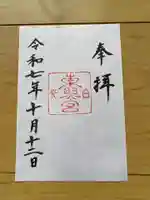 奉拝
令和七年十月十二日